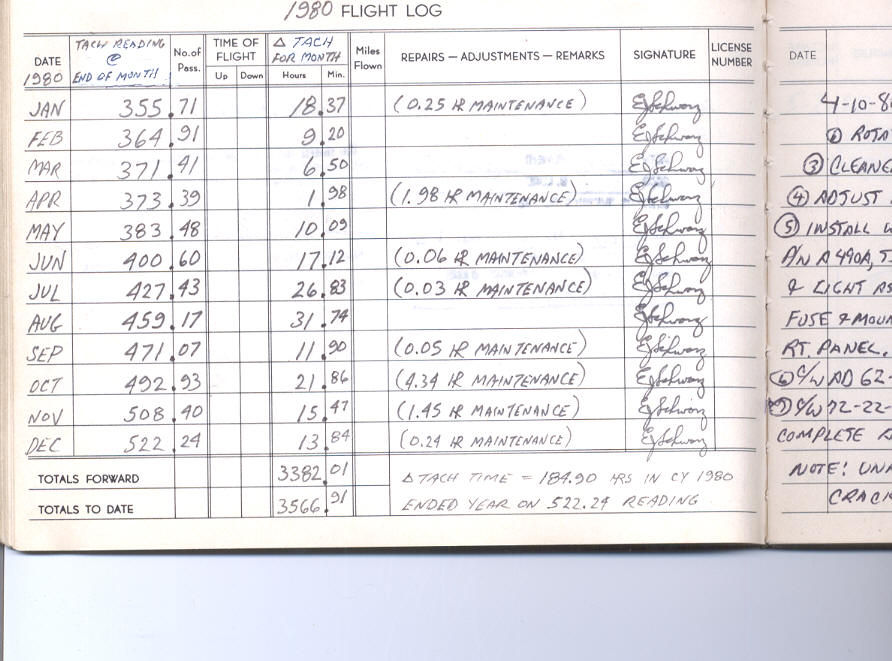 1980 FLIGHT LOG
DATE 1980 TACH READING @ END OF MONTH No. of Pass. TIME OF FLIGHT Up Down Δ TACH FOR MONTH Hours Min. Miles Flown REPAIRS — ADJUSTMENTS — REMARKS SIGNATURE LICENSE NUMBER DATE
JAN 355.71 18.37 (0.25 HR MAINTENANCE) EJSchwarz 4-10-8
FEB 364.91 9.20 EJSchwarz ① ROTA
MAR 371.41 6.50 EJSchwarz ③ CLEANE
APR 373.39 1.98 (1.98 HR MAINTENANCE) EJSchwarz ④ ADJUST
MAY 383.48 10.09 EJSchwarz ⑤ INSTALL
JUN 400.60 17.12 (0.06 HR MAINTENANCE) EJSchwarz P/N A490A, T.
JUL 427.43 26.83 (0.03 HR MAINTENANCE) EJSchwarz & LIGHT AS
AUG 459.17 31.74 EJSchwarz FUSE & MOUN
SEP 471.07 11.90 (0.05 HR MAINTENANCE) EJSchwarz RT. PANEL.
OCT 492.93 21.86 (4.34 HR MAINTENANCE) EJSchwarz ⑥ C/W AD 62-
NOV 508.40 15.47 (1.45 HR MAINTENANCE) EJSchwarz ⑦ C/W 72-22-
DEC 522.24 13.84 (0.24 HR MAINTENANCE) EJSchwarz COMPLETE
TOTALS FORWARD 3382.01 Δ TACH TIME = 184.90 HRS IN CY 1980 NOTE! UNA
TOTALS TO DATE 3566.91 ENDED YEAR ON 522.24 READING CRACK